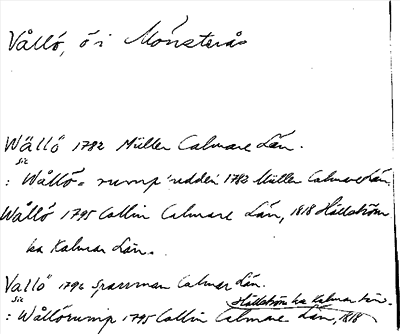 Vållö, ö i Mönsterås
Wållö 1782 Müller Calmare Län.
sic
: Wållö= rump'udden 1782 Müller Calmare Län.
Wållö 1795 Collin Calmare Län, 1818 Hällström
ka Kalmar Län.
Vallö 1794 Sparrman Calmar Län.
sic
Hällström ka Kalmar Län.
: Wållörump 1795 Collin Calmare Län, 1818